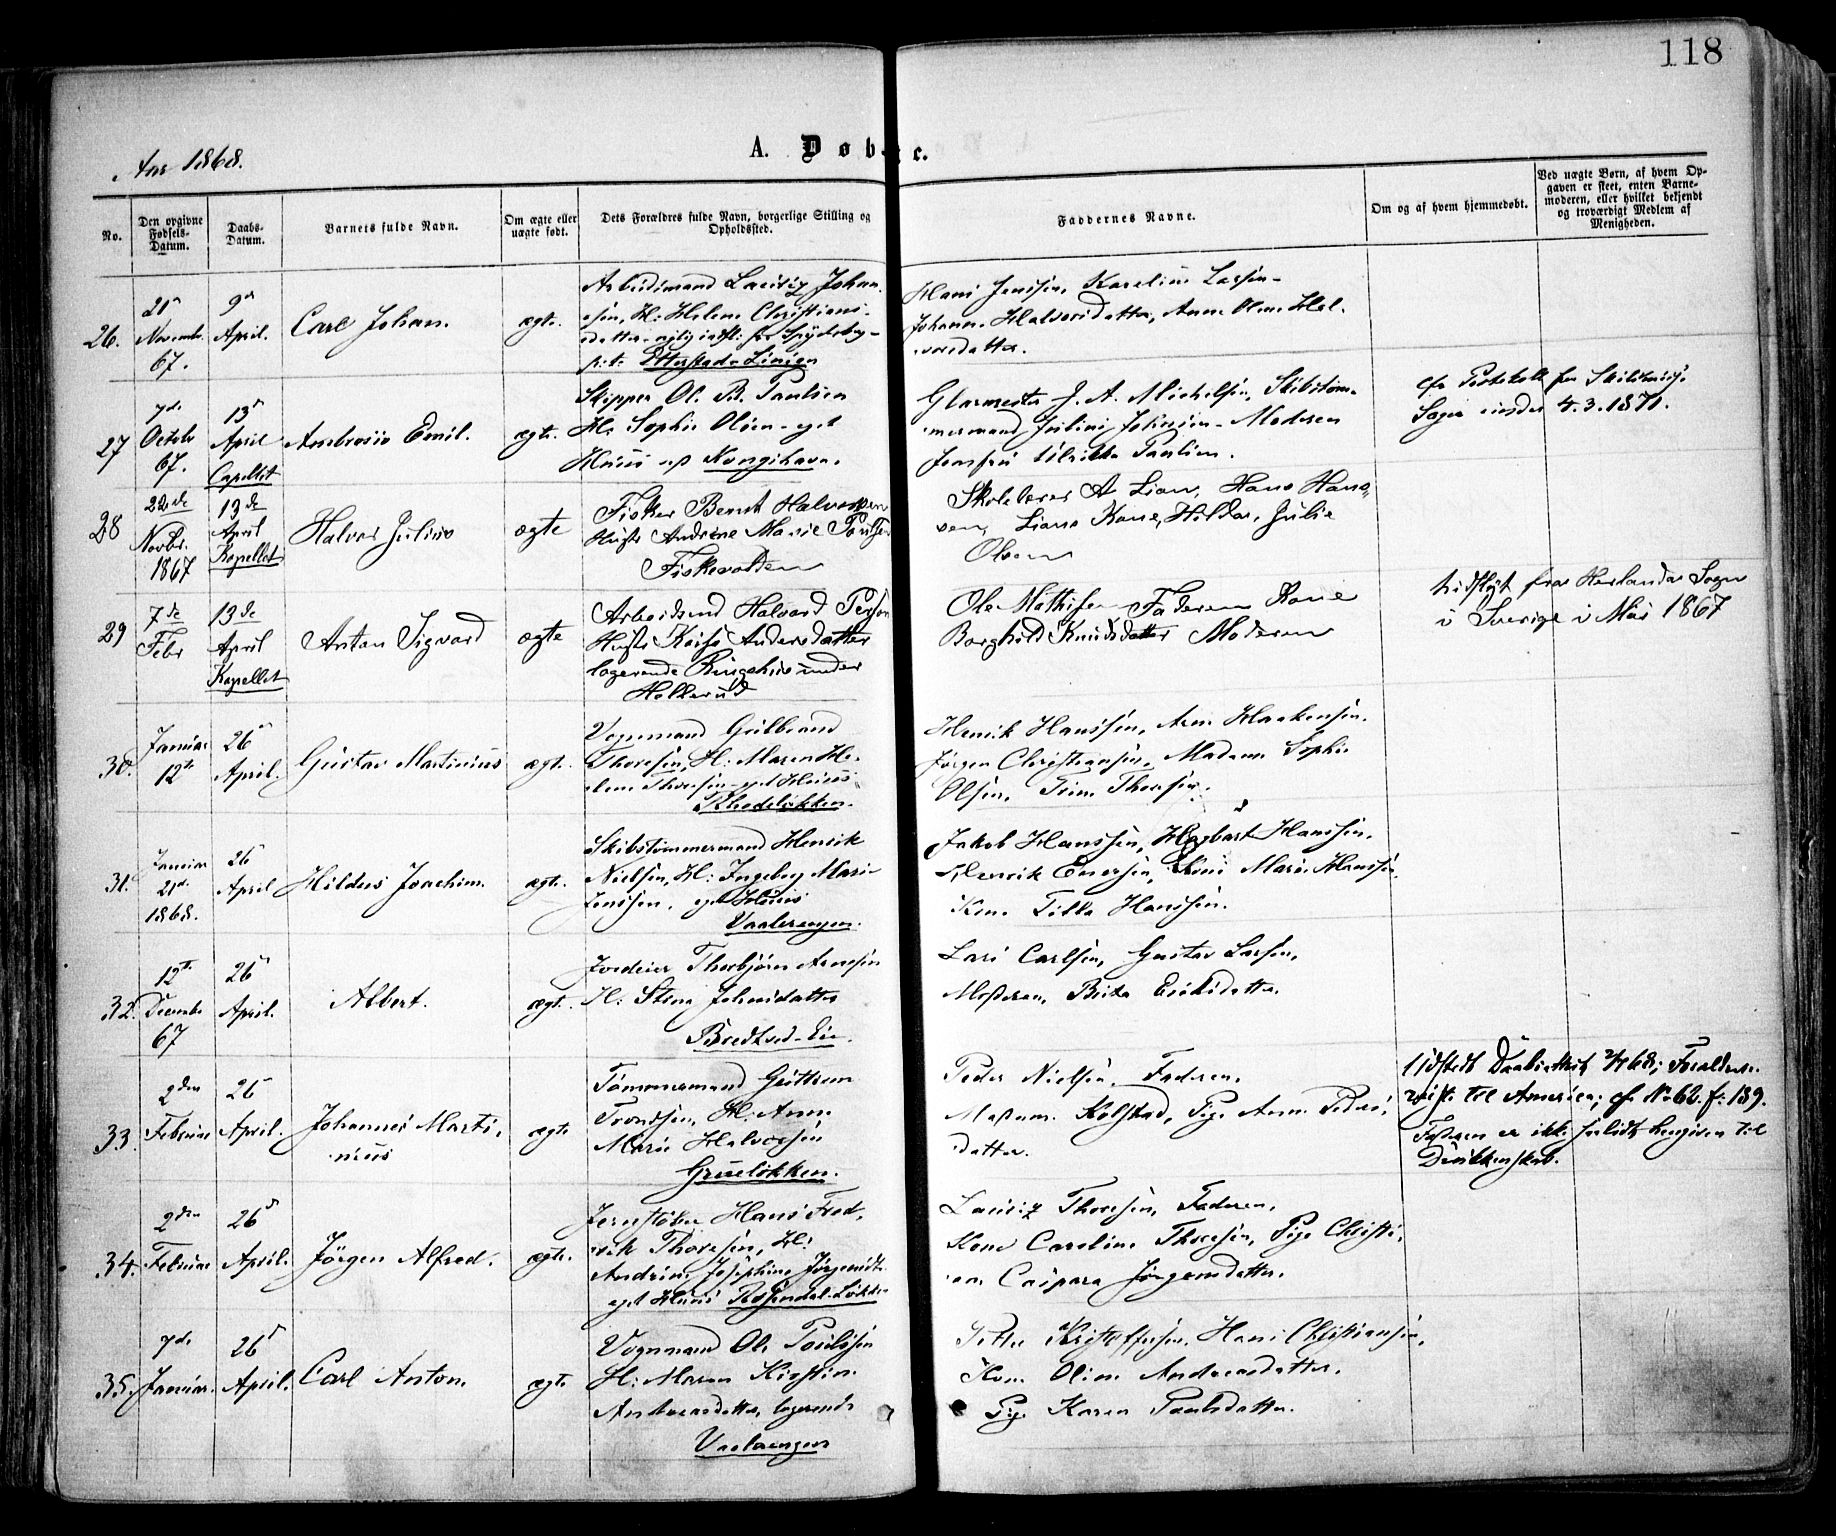 118
Aar 1868.
A. Døbte.
No.
Den opgivne Fødsels-Datum.
Daabs-Datum.
Barnets fulde Navn.
Om ægte eller uægte født.
Dets Forældres fulde Navn, borgerlige Stilling og Opholdssted.
Faddernes Navne.
Om og af hvem hjemmedøbt.
Ved uægte Børn, af hvem Op-
gaven er skeet, enten Barne-
moderen, eller hvilket bekjendt
og troværdigt Medlem af
Menigheden.
26.
21
Novemb.
67.
9de
April.
Carl Johan.
ægte.
Arbeidsmand Lauritz Johan-
sen, H. Helene Christians-
datter
Etterstad-Linien
Hans Jensen, Karelius Larsen
Johanne Halvorsdatter, Anne Oline Hal-
vorsdatter.
27
7de
Octob
67.
13
April
Capellet
Ambrosio Emil.
ægte.
Skipper Ol. B. Paulsen
H. Sophie Olsen - eget
Huus ved Kongshavn.
Glarmester J. A. Michelsen, Skibstøm-
mermand Julius Johnsen - Moderen
Jomfru Ulrikke Paulsen.
cfr Protokoll for
Sager 4.3.1871.
28
22de
Novbr.
1867
13de
April
Kapellet
Halvor Julius
ægte
Fisker Bernt Halvorsen
Hustr Andrine Marie Paulsen
Fiskevolden
Skolelærer A Lian, Hans Han-
sen, Lians Kone, Hilda, Julie
Olsen
29
7de
Febr
13de
April
Kapellet
Anton Sigvard
ægte
Arbeidsmd Halvard Person
Hustr Kaisa Andersdatter
logerende Ringshus under
Hellerud
Ole Mathisen Faderen Kone
Borghild Knudsdatter Moderen
Indflyt fra Herlanda Sogn
i Sverige i Mai 1867
30.
Januar
12te
26
April.
Gustav Martinius
ægte.
Vognmand Gulbrand
Thoresen, H. Maren He-
lene Thoresen eget Huus
Rhodeløkken.
Henrik Hanssen, Arne Haakensen.
Jørgen Christiansen, Madam Sophie
Olsen, Trine Thoresen.
31.
Januar
21de
1868.
26
April
Hildus Joachim.
ægte.
Skibstømmermand Henrik
Nielsen, H. Ingeborg Marie
Jenssen, eget Huus
Vaalerengen.
Jakob Hanssen, Hagbart Hanssen.
Henrik Enersen, Marie Hanssen,
Kone Tilla Hanssen.
32.
12te
Decemb
67
26
April.
Albert.
ægte.
Jordeier Thorbjørn Arnesen
H. Stine Johnsdatter
Bredtved-Eie.
Lars Carlsen, Gustav Larsen,
Moderen, Brita Eriksdatter.
33.
2den
Februar
26
April.
Johannes Marti-
nius
ægte
Tømmermand Guttorm
Trondsen, H. Anne
Marie Halvorsen
Grueløkken.
Peder Nielsen, Faderen,
Madame Kolstad, Pige Anne Peders-
datter.
Udstedt Daabsattest 68; Forældrene
reiste til America; cf. No 62 f. 189.
Faderen er ikke hengiven til
Drikkenskab.
34.
2den
Februar
26
April.
Jørgen Alfred.
ægte.
Jernstøber Hans Fred-
rik Thoresen, H.
Andrine Josephine Jørgensdt.
eget Huus Rosendal-Løkken
Lauritz Thoresen, Faderen,
Kone Caroline Thoresen, Pige Christi-
ane Caspara Jørgensdatter.
35.
7de
Januar.
26
April.
Carl Anton.
ægte
Vognmand Ole Poulsen
H. Maren Kirstine
Andreasdatter, logerende
Vaalerengen
Petter Kristoffersen, Hans Christiansen,
Kone Oline Andreasdatter.
Pige Karen Paulsdatter.